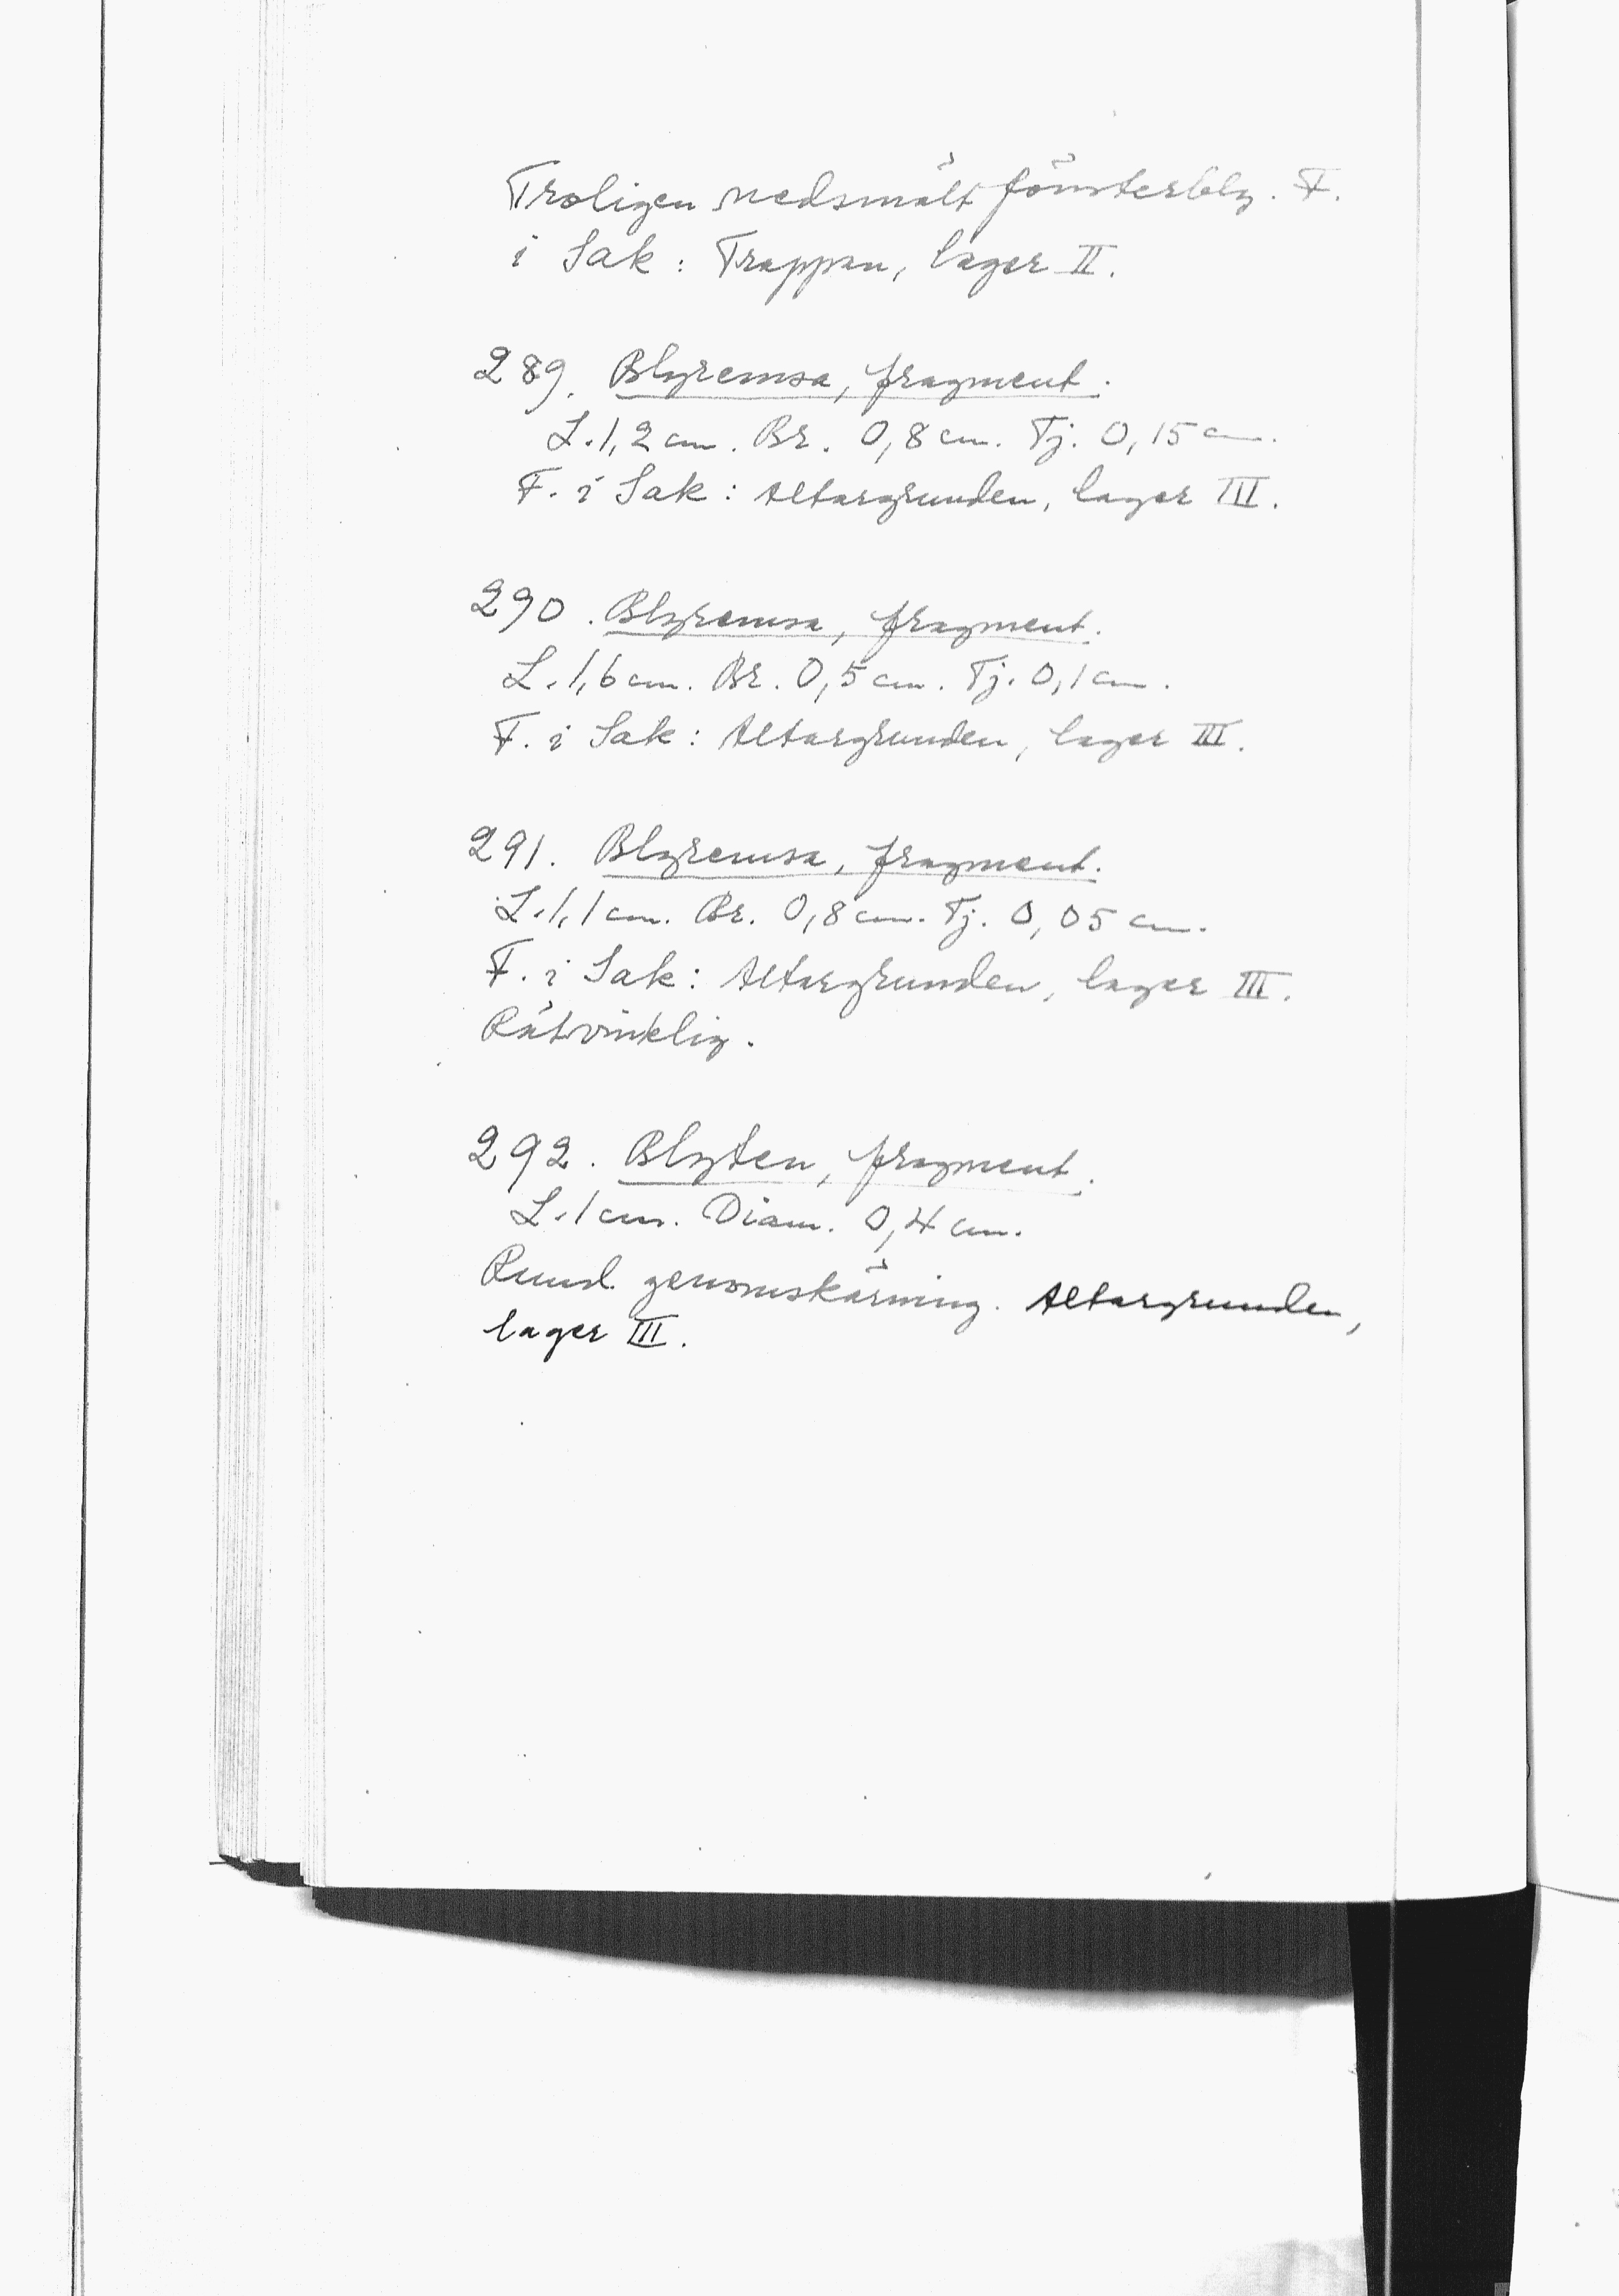 Troligen nedsmält fönsterbly. F.
i Sak: Trappan, lager II.
289. Blyremsa, fragment.
L. 1,2 cm. Br. 0,8 cm. Tj. 0,15 cm.
F. i Sak: Altargrunden, lager III.
290. Blyremsa, fragment.
L. 1,6 cm. Br. 0,5 cm. Tj. 0,1 cm.
F. i Sak: Altargrunden, lager III.
291. Blyremsa, fragment.
L. 1,1 cm. Br. 0,8 cm. Tj. 0,05 cm.
F. i Sak: Altargrunden, lager III.
Rätvinklig.
292. Blyten, fragment.
L. 1 cm. Diam. 0,4 cm.
Rund genomskärning. Altargrunden,
lager III.